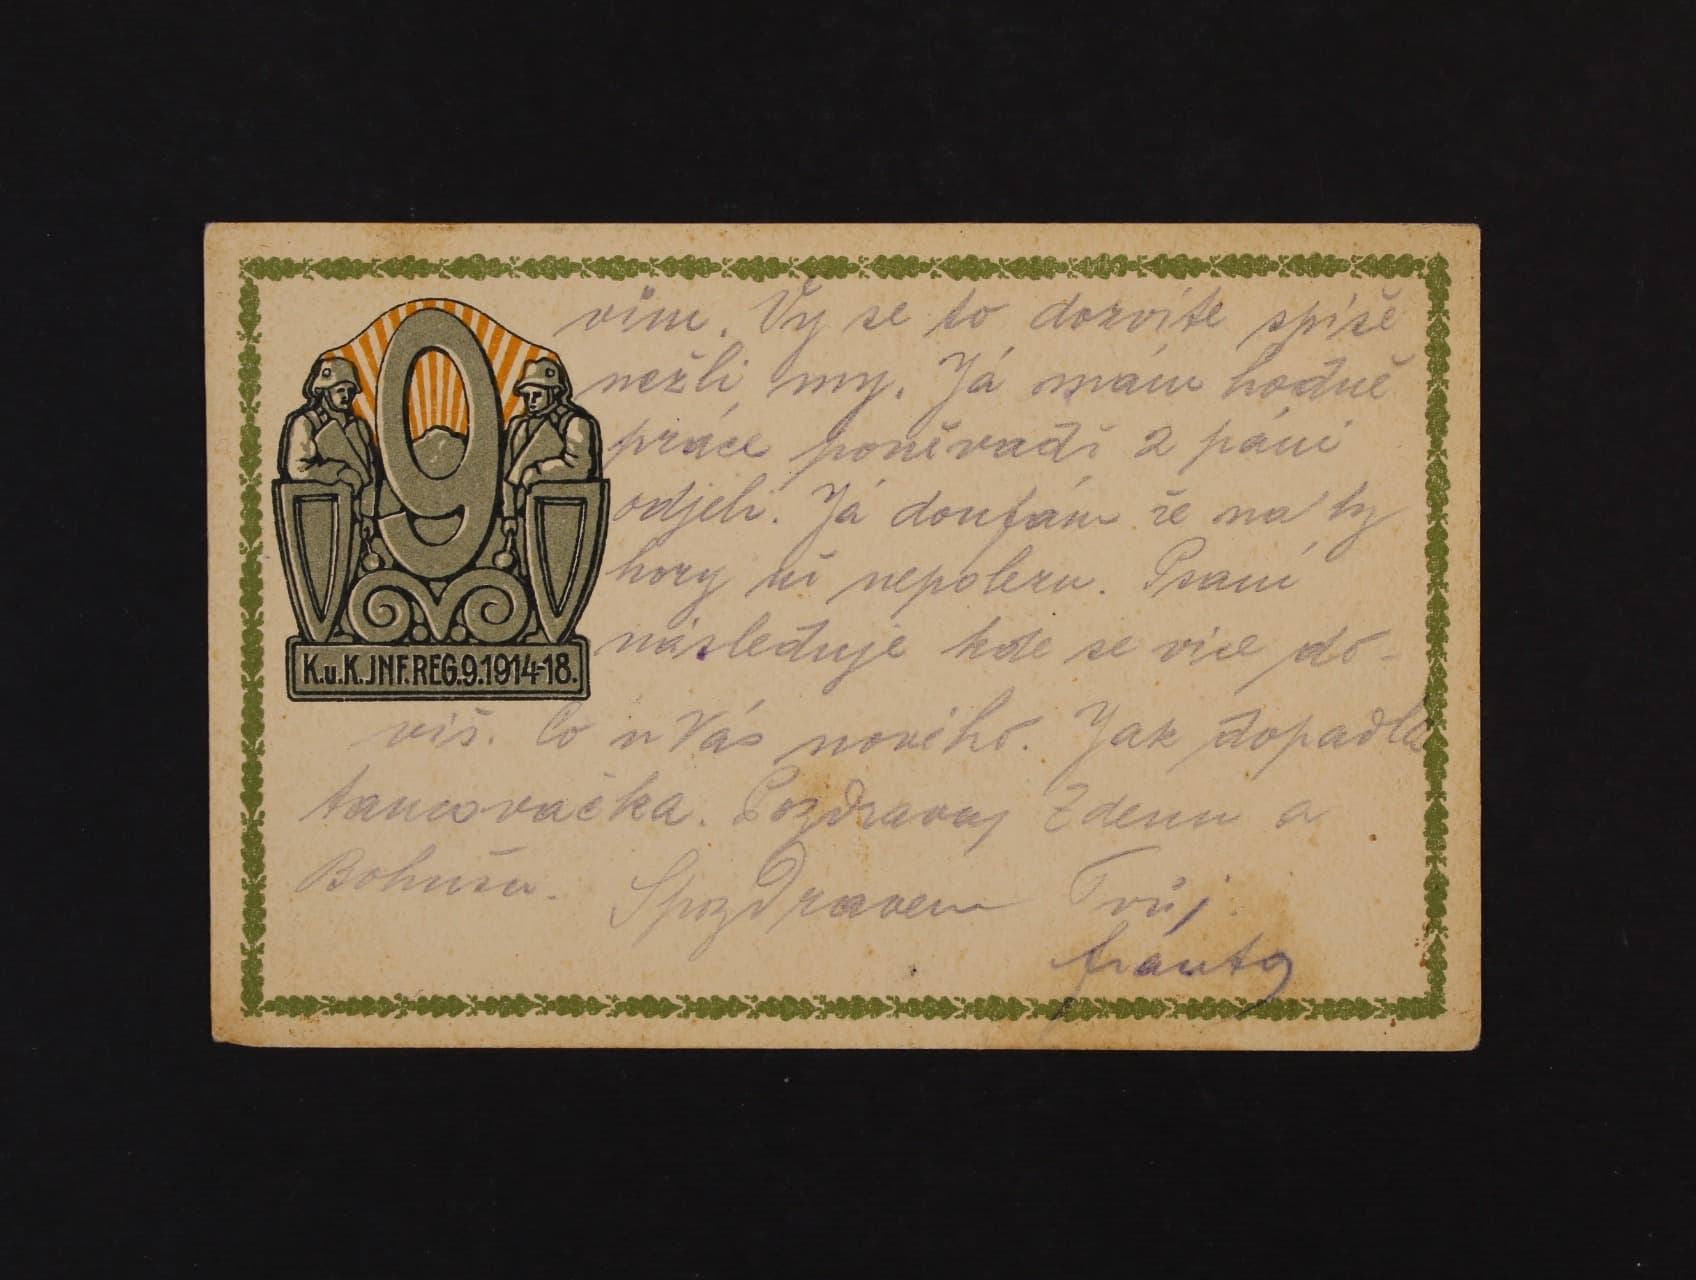 vím. Vy se to dozvíte spíše
nežli my. Já mám hodně
práce poněvadž 2 páni
odjeli. Já doufám že na ty
hory už nepolezu. Psaní
následuje kde se více do-
víš. Co u Vás nového. Jak dopadla
tancovačka. Pozdravuj Zdenu a
Bohuša. S pozdravem Tvůj
Fránta
9
K.u.K.INF.REG.9.1914-18.